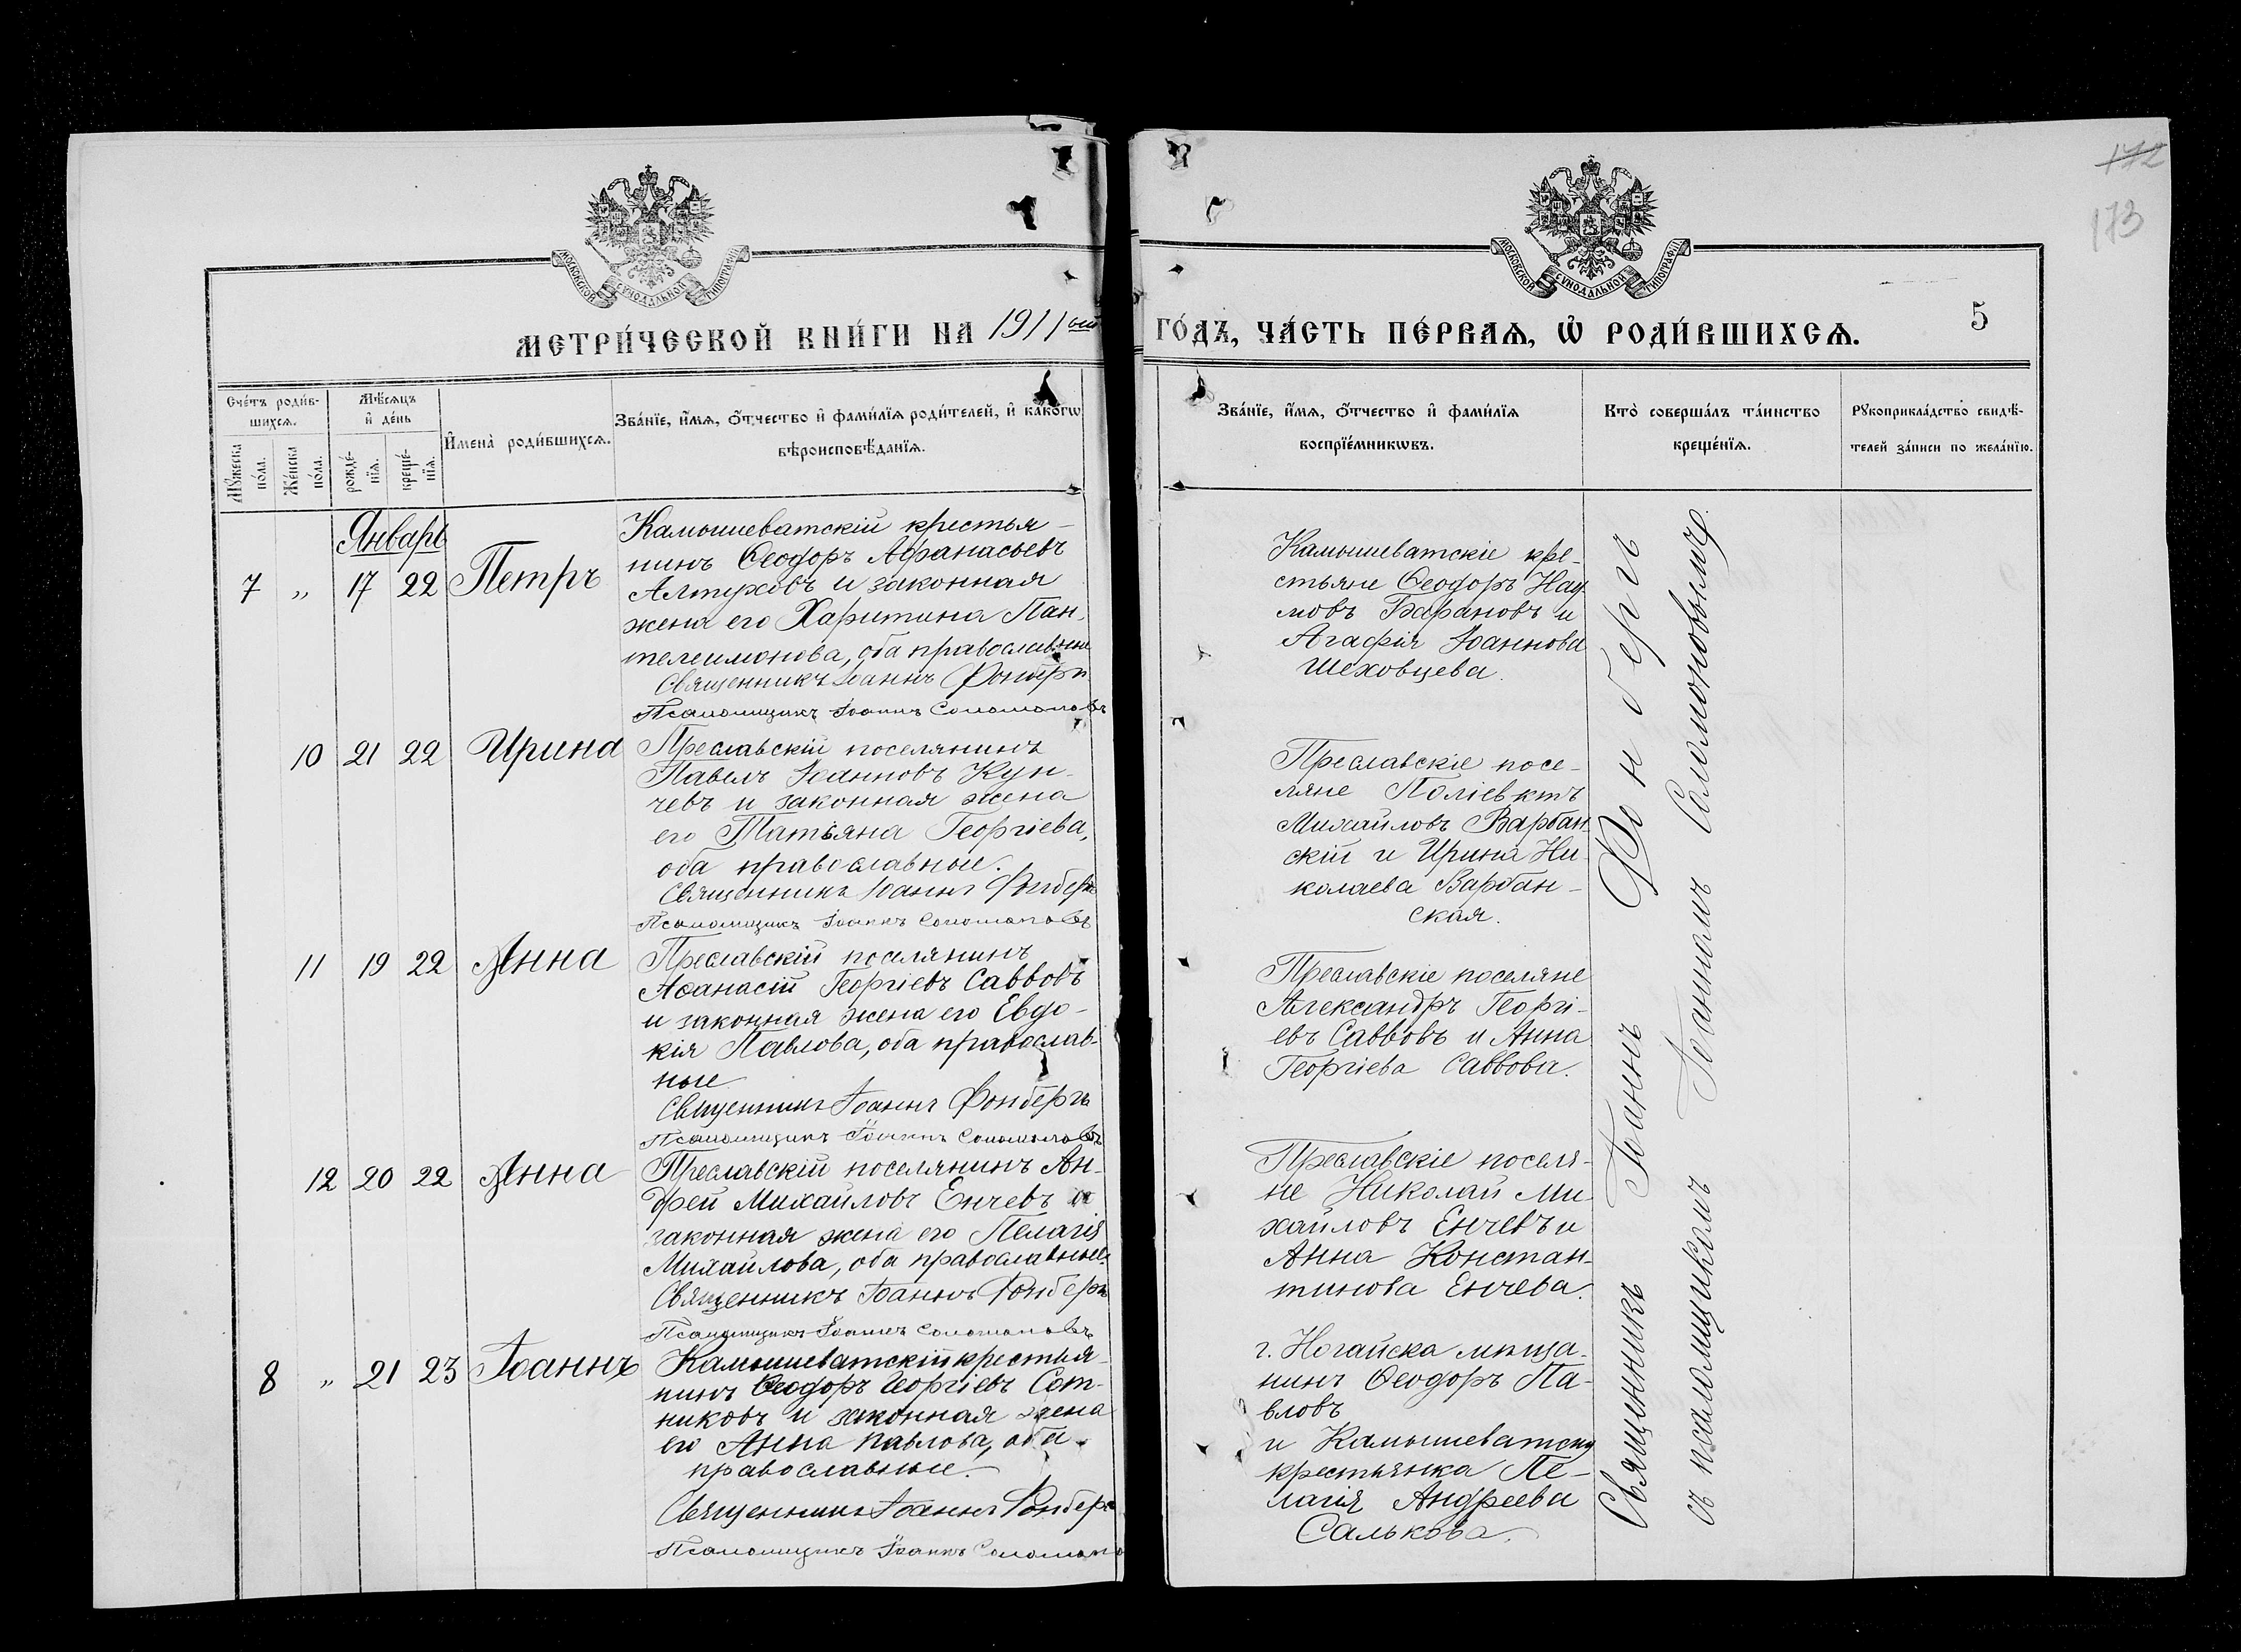 172
173
МОСКОВСКОЙ СѴНОДАЛЬНОЙ ТИПОГРАФІИ
МОСКОВСКОЙ СѴНОДАЛЬНОЙ ТИПОГРАФІИ
МЕТРИ́ЧЕСКОЙ КНИ́ГИ НА 1911ый
ГО́ДЪ, ЧА́СТЬ ПЕ́РВАѦ, Ѽ РОДИ́ВШИХСѦ.
5
Сче́тъ роди́в-
шихсѧ.
Мꙋ́жеска
по́ла.
Же́нска
по́ла.
Мѣ́сѧцъ
и҆ де́нь
рожде́-
нїѧ.
креще́-
нїѧ.
И҆мена̀ роди́вшихсѧ.
Зва́нїе, и҆́мѧ, ѻ҆́тчество и҆ фами́лїѧ роди́телей, и҆ како́гѡ
вѣроисповѣ́данїѧ.
Зва́нїе, и҆́мѧ, ѻ҆́тчество и҆ фами́лїѧ
воспрїе́мникѡвъ.
Кто̀ соверша́лъ та́инство
креще́нїѧ.
Рꙋкоприкла́дство свидѣ́-
телей за́писи по жела́нїю.
Январь
7 „ 17 22 Петръ
Камышеватскій крестья-
нинъ Ѳеодоръ Афанасьевъ
Алтуховъ и законная
жена его Харитина Пан-
телеимонова, оба православные
Священникъ Іоаннъ Фонбергъ
Псаломщикъ Іоаннъ Соломоновъ
Камышеватскіе кре-
стьяне Ѳеодоръ Нау-
мовъ Барановъ и
Агафія Іоаннова
Шеховцева.
10 21 22 Ирина
Преславскій поселянинъ
Павелъ Іоанновъ Кун-
чевъ и законная жена
его Татьяна Георгіева,
оба православные.
Священникъ Іоаннъ Фонбергъ
Псаломщикъ Іоаннъ Соломоновъ
Преславскіе посе-
ляне Поліевктъ
Михайловъ Варбан-
скій и Ирина Ни-
колаева Варбан-
ская.
11 19 22 Анна
Преславскій поселянинъ
Аѳанасій Георгіевъ Саввовъ
и законная жена его Евдо-
кія Павлова, оба православ-
ные
Священникъ Іоаннъ Фонбергъ
Псаломщикъ Іоаннъ Соломоновъ
Преславскіе поселяне
Александръ Георгі-
евъ Саввовъ и Анна
Георгіева Саввова.
12 20 22 Анна
Преславскій поселянинъ Ан-
дрей Михайловъ Енчевъ и
законная жена его Пелагія
Михайлова, оба православные.
Священникъ Іоаннъ Фонбергъ
Псаломщикъ Іоаннъ Соломоновъ
Преславскіе поселя-
не Николай Ми-
хайловъ Енчевъ и
Анна Констан-
тинова Енчева.
8 „ 21 23 Іоаннъ
Камышеватскій крестья-
нинъ Ѳеодоръ Георгіевъ Сот-
никовъ и законная жена
его Анна Павлова, оба
православные.
Священникъ Іоаннъ Фонбергъ
Псаломщикъ Іоаннъ Соломоно
г. Ногайска мѣща-
нинъ Ѳеодоръ Па-
вловъ
и Камышеватску
крестьянка Пе-
лагія Андреева
Салькова.
Священникъ Іоаннъ Фонбергъ
съ псаломщикомъ Іоанномъ Соломоновымъ.